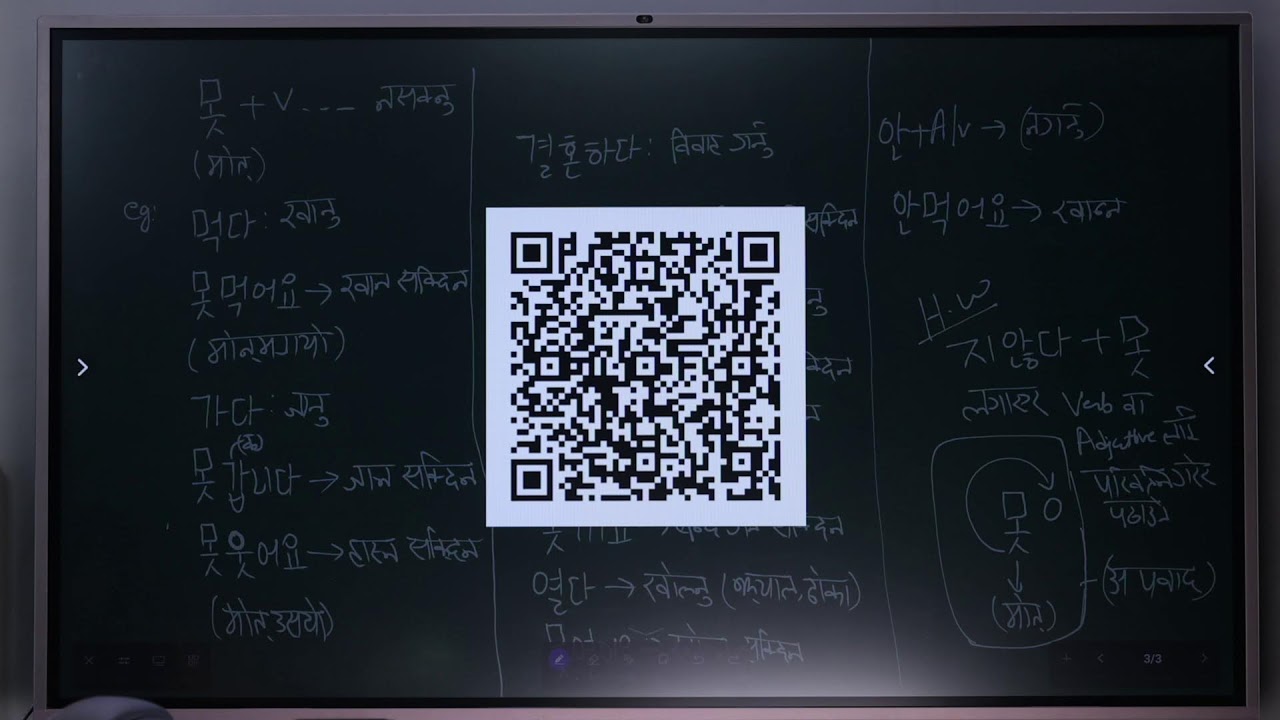 못 + V .... नसक्नु
(मोत्)
eg: 먹다 : खानु
못 먹어요 → खान सक्दिन
(मोन्मगायो)
가다 : जानु
못 갑니다 → जान सक्दिन
못 웃어요 → हास्न सक्दिन
(मोत् उसयो)
결혼하다 : विवाह गर्नु
सक्दिन
नु
सक्दिन
सक्दिन
열다 → खोल्नु (झ्याल, ढोका)
सक्दिन
안 + A/v → (नगर्नु)
안 먹어요 → खान्न
H.W
지 않다 + 못
लगाएर Verb वा
Adjective लाई
परिवर्तन गरेर
पठाउने
못 ㅇ
↓
(मोन्) - (अपवाद)
3/3